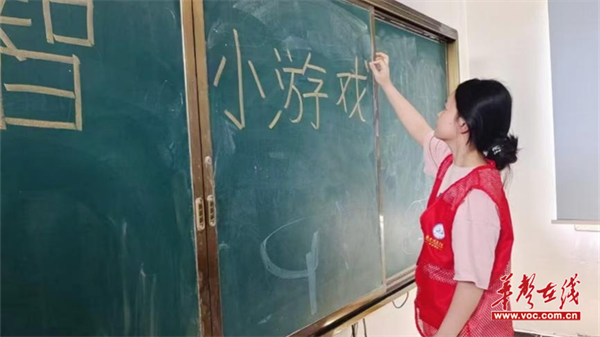 智
小游戏
华声在线
www.voc.com.cn